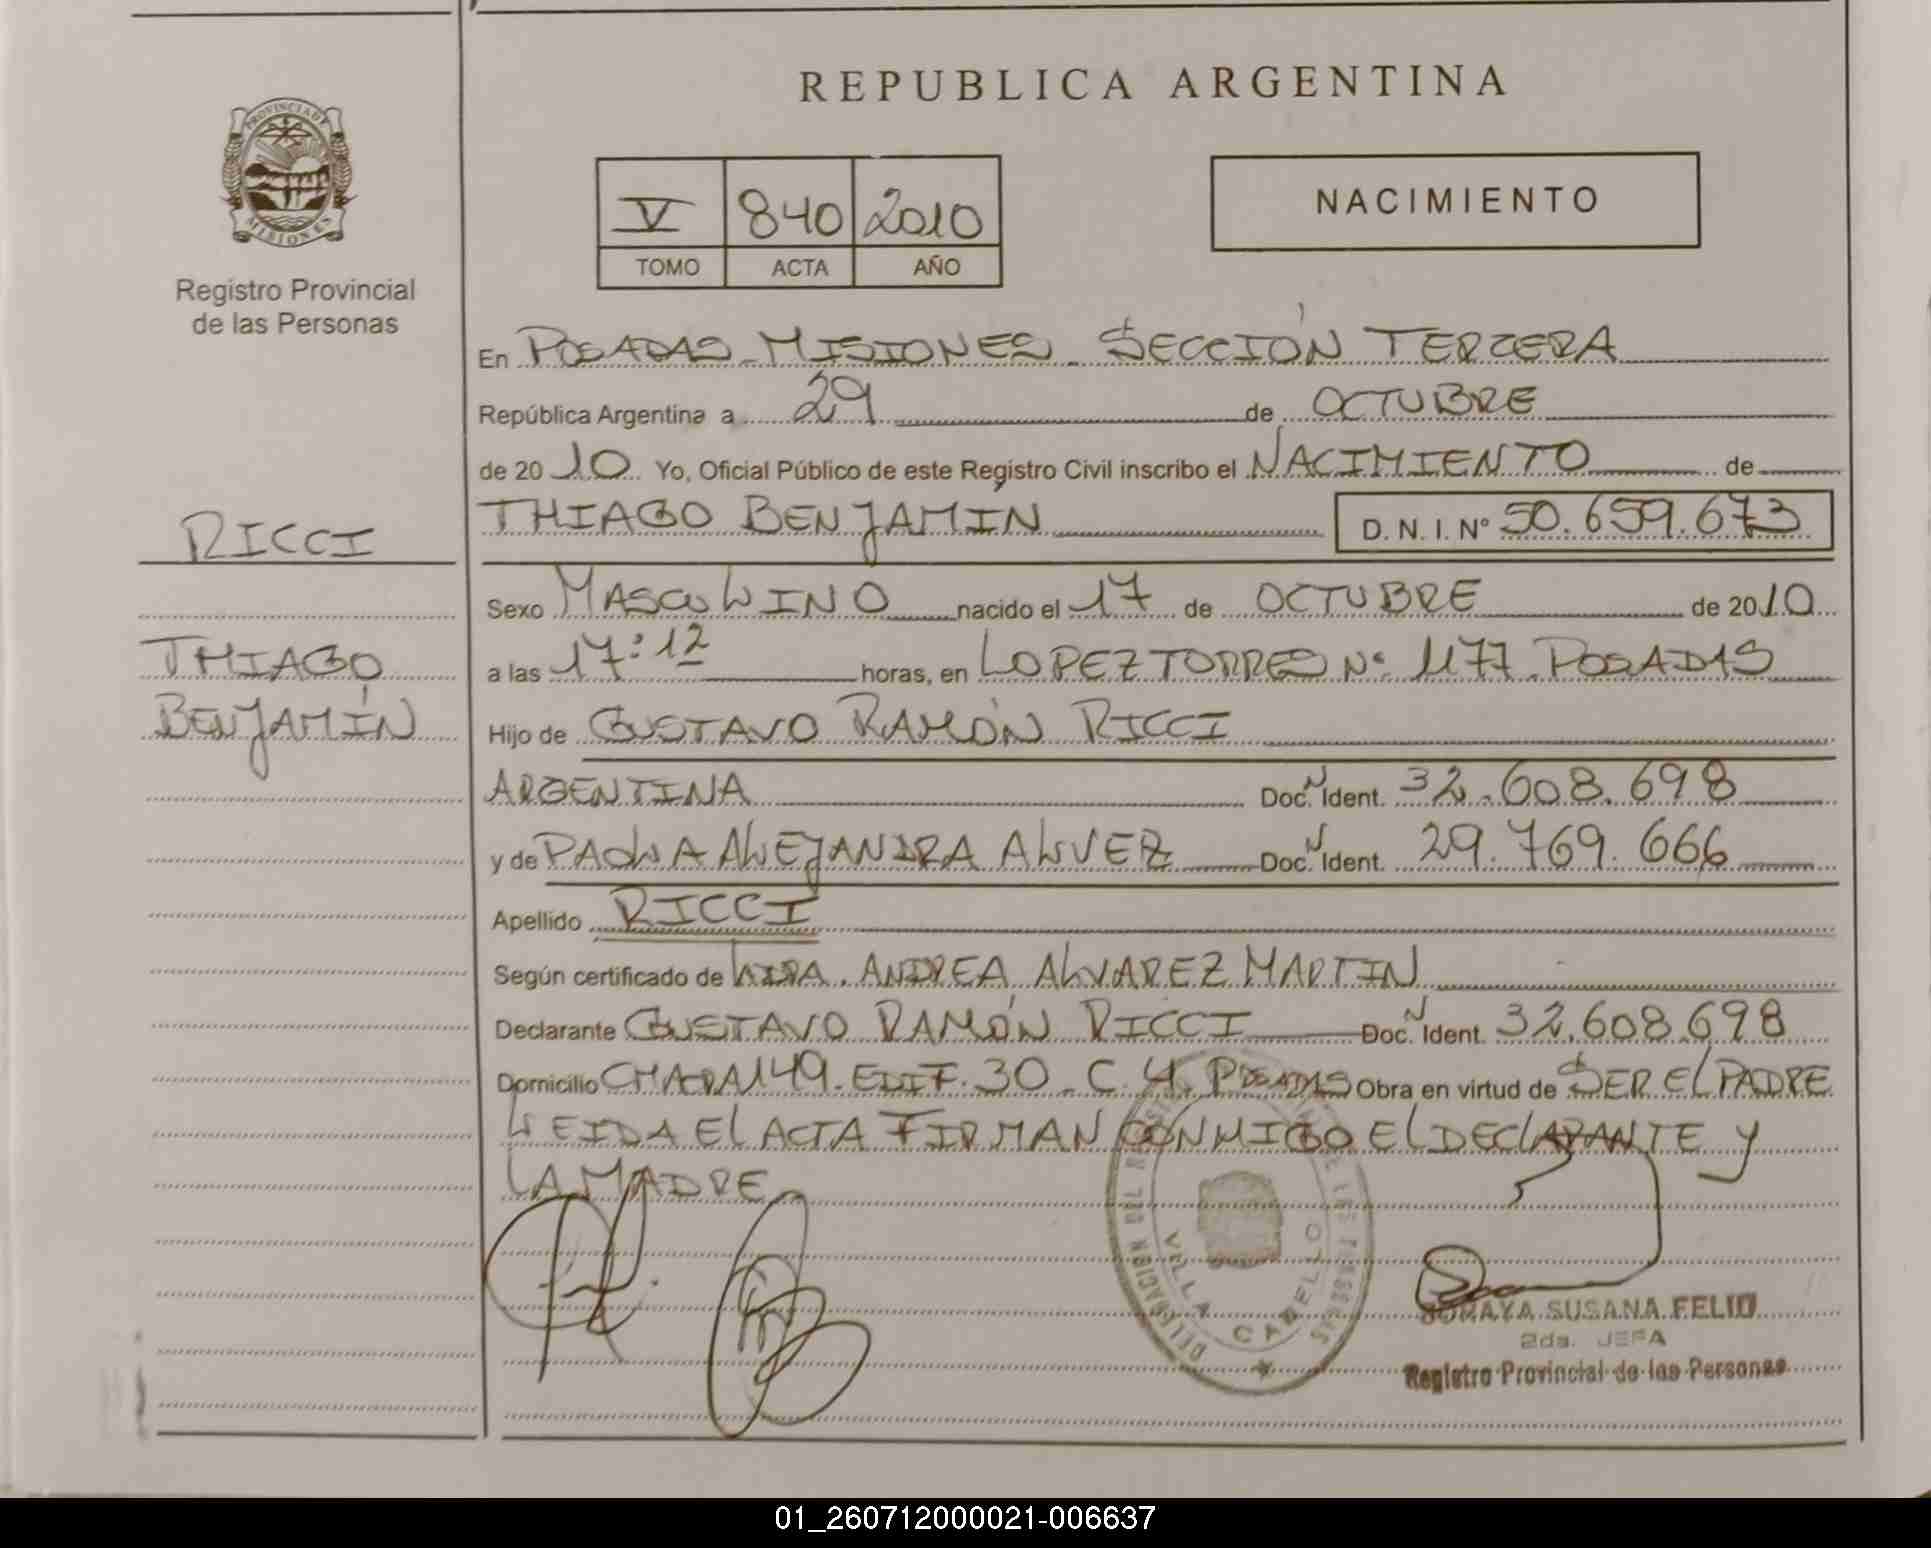 REPUBLICA ARGENTINA
PROVINCIA DE MISIONES
Registro Provincial
de las Personas
V 840 2010
TOMO ACTA AÑO
NACIMIENTO
En POSADAS MISIONES SECCIÓN TERCERA
República Argentina a 29 de OCTUBRE
de 2010 Yo, Oficial Público de este Registro Civil inscribo el NACIMIENTO de
THIAGO BENJAMÍN D. N. I. Nº 50.659.673
RICCI
THIAGO
BENJAMÍN
Sexo MASCULINO nacido el 17 de OCTUBRE de 2010
a las 17:12 horas, en LOPEZ TORRES Nº 1177 POSADAS
Hijo de GUSTAVO RAMÓN RICCI
ARGENTINA Doc. N Ident. 32.608.698
y de PAOLA ALEJANDRA ALVEZ Doc. N Ident. 29.769.666
Apellido RICCI
Según certificado de LIDA. ANDREA ALVAREZ MARTIN
Declarante GUSTAVO RAMÓN RICCI Doc. N Ident. 32.608.698
Domicilio CHACRA 149. EDIF. 30 - C. 4. POSADAS Obra en virtud de SER EL PADRE
LEIDA EL ACTA FIRMAN CONMIGO EL DECLARANTE Y
LA MADRE
DELEGACION DEL REGISTRO DE LAS PERSONAS
VILLA CABELLO
SORAYA SUSANA FELIU
2da. JEFA
Registro Provincial de las Personas
01_260712000021-006637